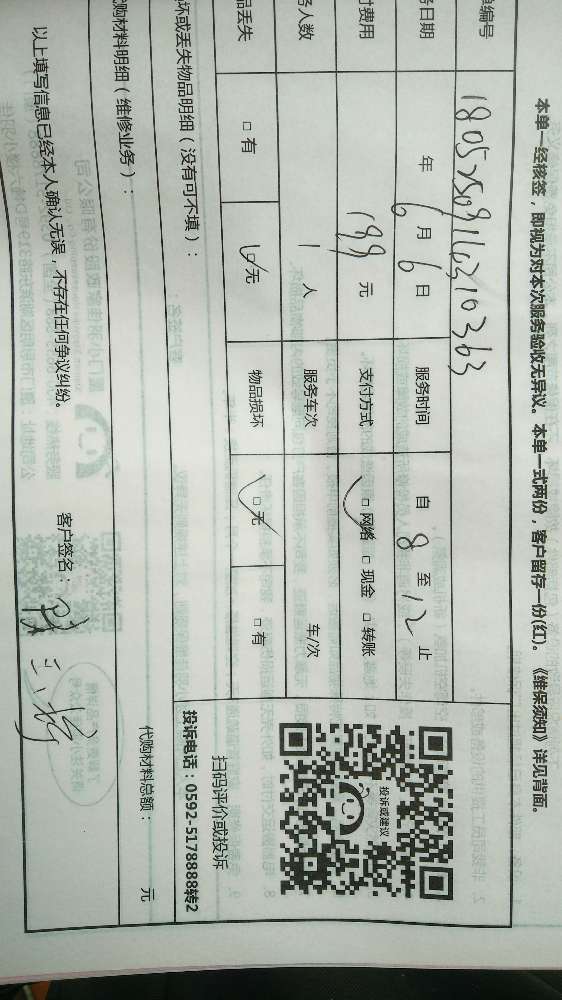 本单一经核签，即视为对本次服务验收无异议。本单一式两份，客户留存一份(红)。《维保须知》详见背面。
单编号 180525091623210363
务日期 年 6 月 6 日 服务时间 自 8 至 12 止
付费用 199 元 支付方式 □ 网络 □ 现金 □ 转账
务人数 1 人 服务车次 车/次
品丢失 □ 有 □ 无 物品损坏 □ 无 □ 有
坏或丢失物品明细（没有可不填）：
代购材料明细（维修业务）：
代购材料总额： 元
以上填写信息已经本人确认无误，不存在任何争议纠纷。 客户签名：
投诉或建议
扫码评价或投诉
投诉电话：0592-5178888转2